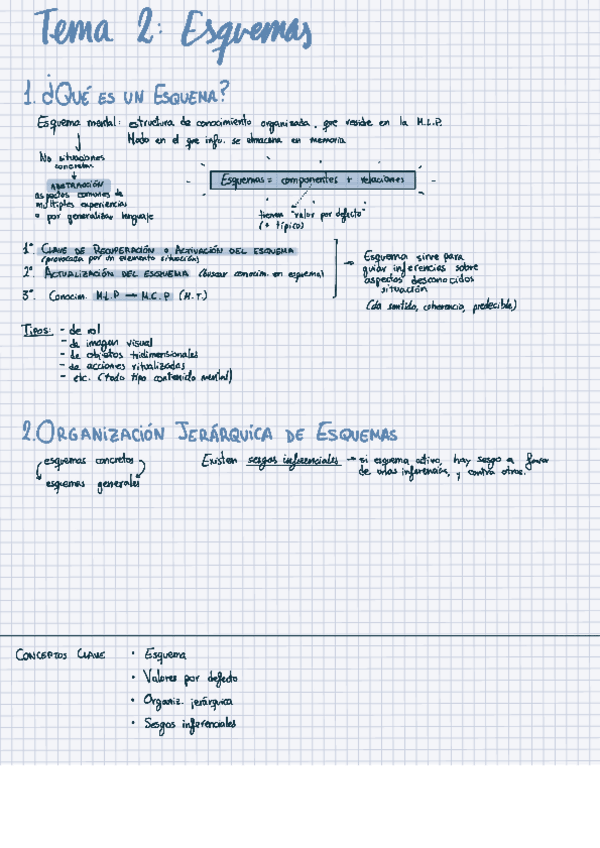 Tema 2: Esquemas
1. ¿Qué es un Esquema?
Esquema mental: estructura de conocimiento organizada, que reside en la M.L.P.
Modo en el que info. se almacena en memoria
No situaciones
concretas
ABSTRACCIÓN
aspectos comunes de
múltiples experiencias
o por generalizar lenguaje
Esquemas = componentes + relaciones
tienen "valor por defecto"
(+ típico)
1º Clave de Recuperación o Activación del esquema
(provocada por un elemento situación)
2º Actualización del esquema (buscar conocim. en esquema)
3º. Conocim. M.L.P → M.C.P (M.T.)
→ Esquema sirve para
guiar inferencias sobre
aspectos desconocidos
situación
(da sentido, coherencia, predecible)
Tipos: - de rol
- de imagen visual
- de objetos tridimensionales
- de acciones ritualizadas
- etc. (todo tipo contenido mental)
2. Organización Jerárquica de Esquemas
esquemas concretos
esquemas generales
Existen sesgos inferenciales → si esquema activo, hay sesgo a favor
de unas inferencias, y contra otras.
Conceptos Clave
• Esquema
• Valores por defecto
• Organiz. jerárquica
• Sesgos inferenciales